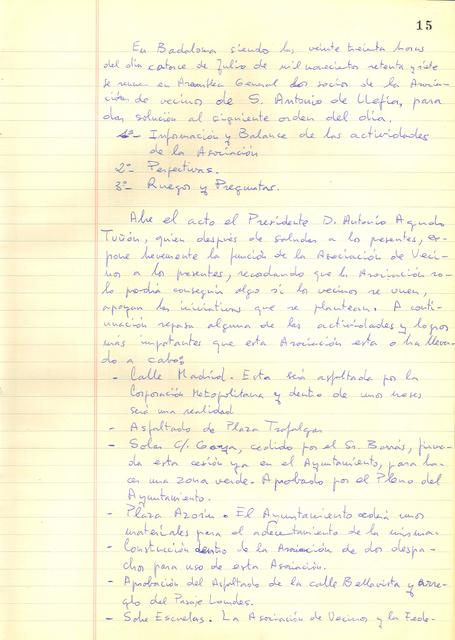 15
En Badalona siendo las veinte treinta horas
del día catorce de Julio de mil novecientos setenta y siete
se reune en Asamblea General los socios de la Asocia-
ción de vecinos de S. Antonio de Llefia, para
dar solución al siguiente orden del día.
1º- Información y Balance de las actividades
de la Asociación
2º- Perspectivas.
3º- Ruegos y Preguntas.
Abre el acto el Presidente D. Antonio Agudo
Tuñón, quien después de saludar a los presentes, ex-
pone brevemente la función de la Asociación de Veci-
nos a los presentes, recordando que la Asociación so-
lo podrá conseguir algo si los vecinos se unen,
apoyan las iniciativas que se plantean. A conti-
nuación repasa alguna de las actividades y logros
más importantes que esta Asociación esta o ha lleva-
do a cabo:
- Calle Madrid. Esta será asfaltada por la
Corporación Metropolitana y dentro de unos meses
será una realidad
- Asfaltado de Plaza Trafalgar
- Solar C/ cedido por el Sr. Barrás, firma-
da esta cesión ya en el Ayuntamiento, para ha-
cer una zona verde. Aprobado por el Pleno del
Ayuntamiento.
- Plaza Azorín. El Ayuntamiento cederá unos
materiales para el adecentamiento de la misma.
- Construcción dentro de la Asociación de dos despa-
chos para uso de esta Asociación.
- Aprobación del Asfaltado de la calle Bellavista y arre-
glo del Pasaje Lourdes.
- Sobre Escuelas. La Asociación de Vecinos y la Fede-